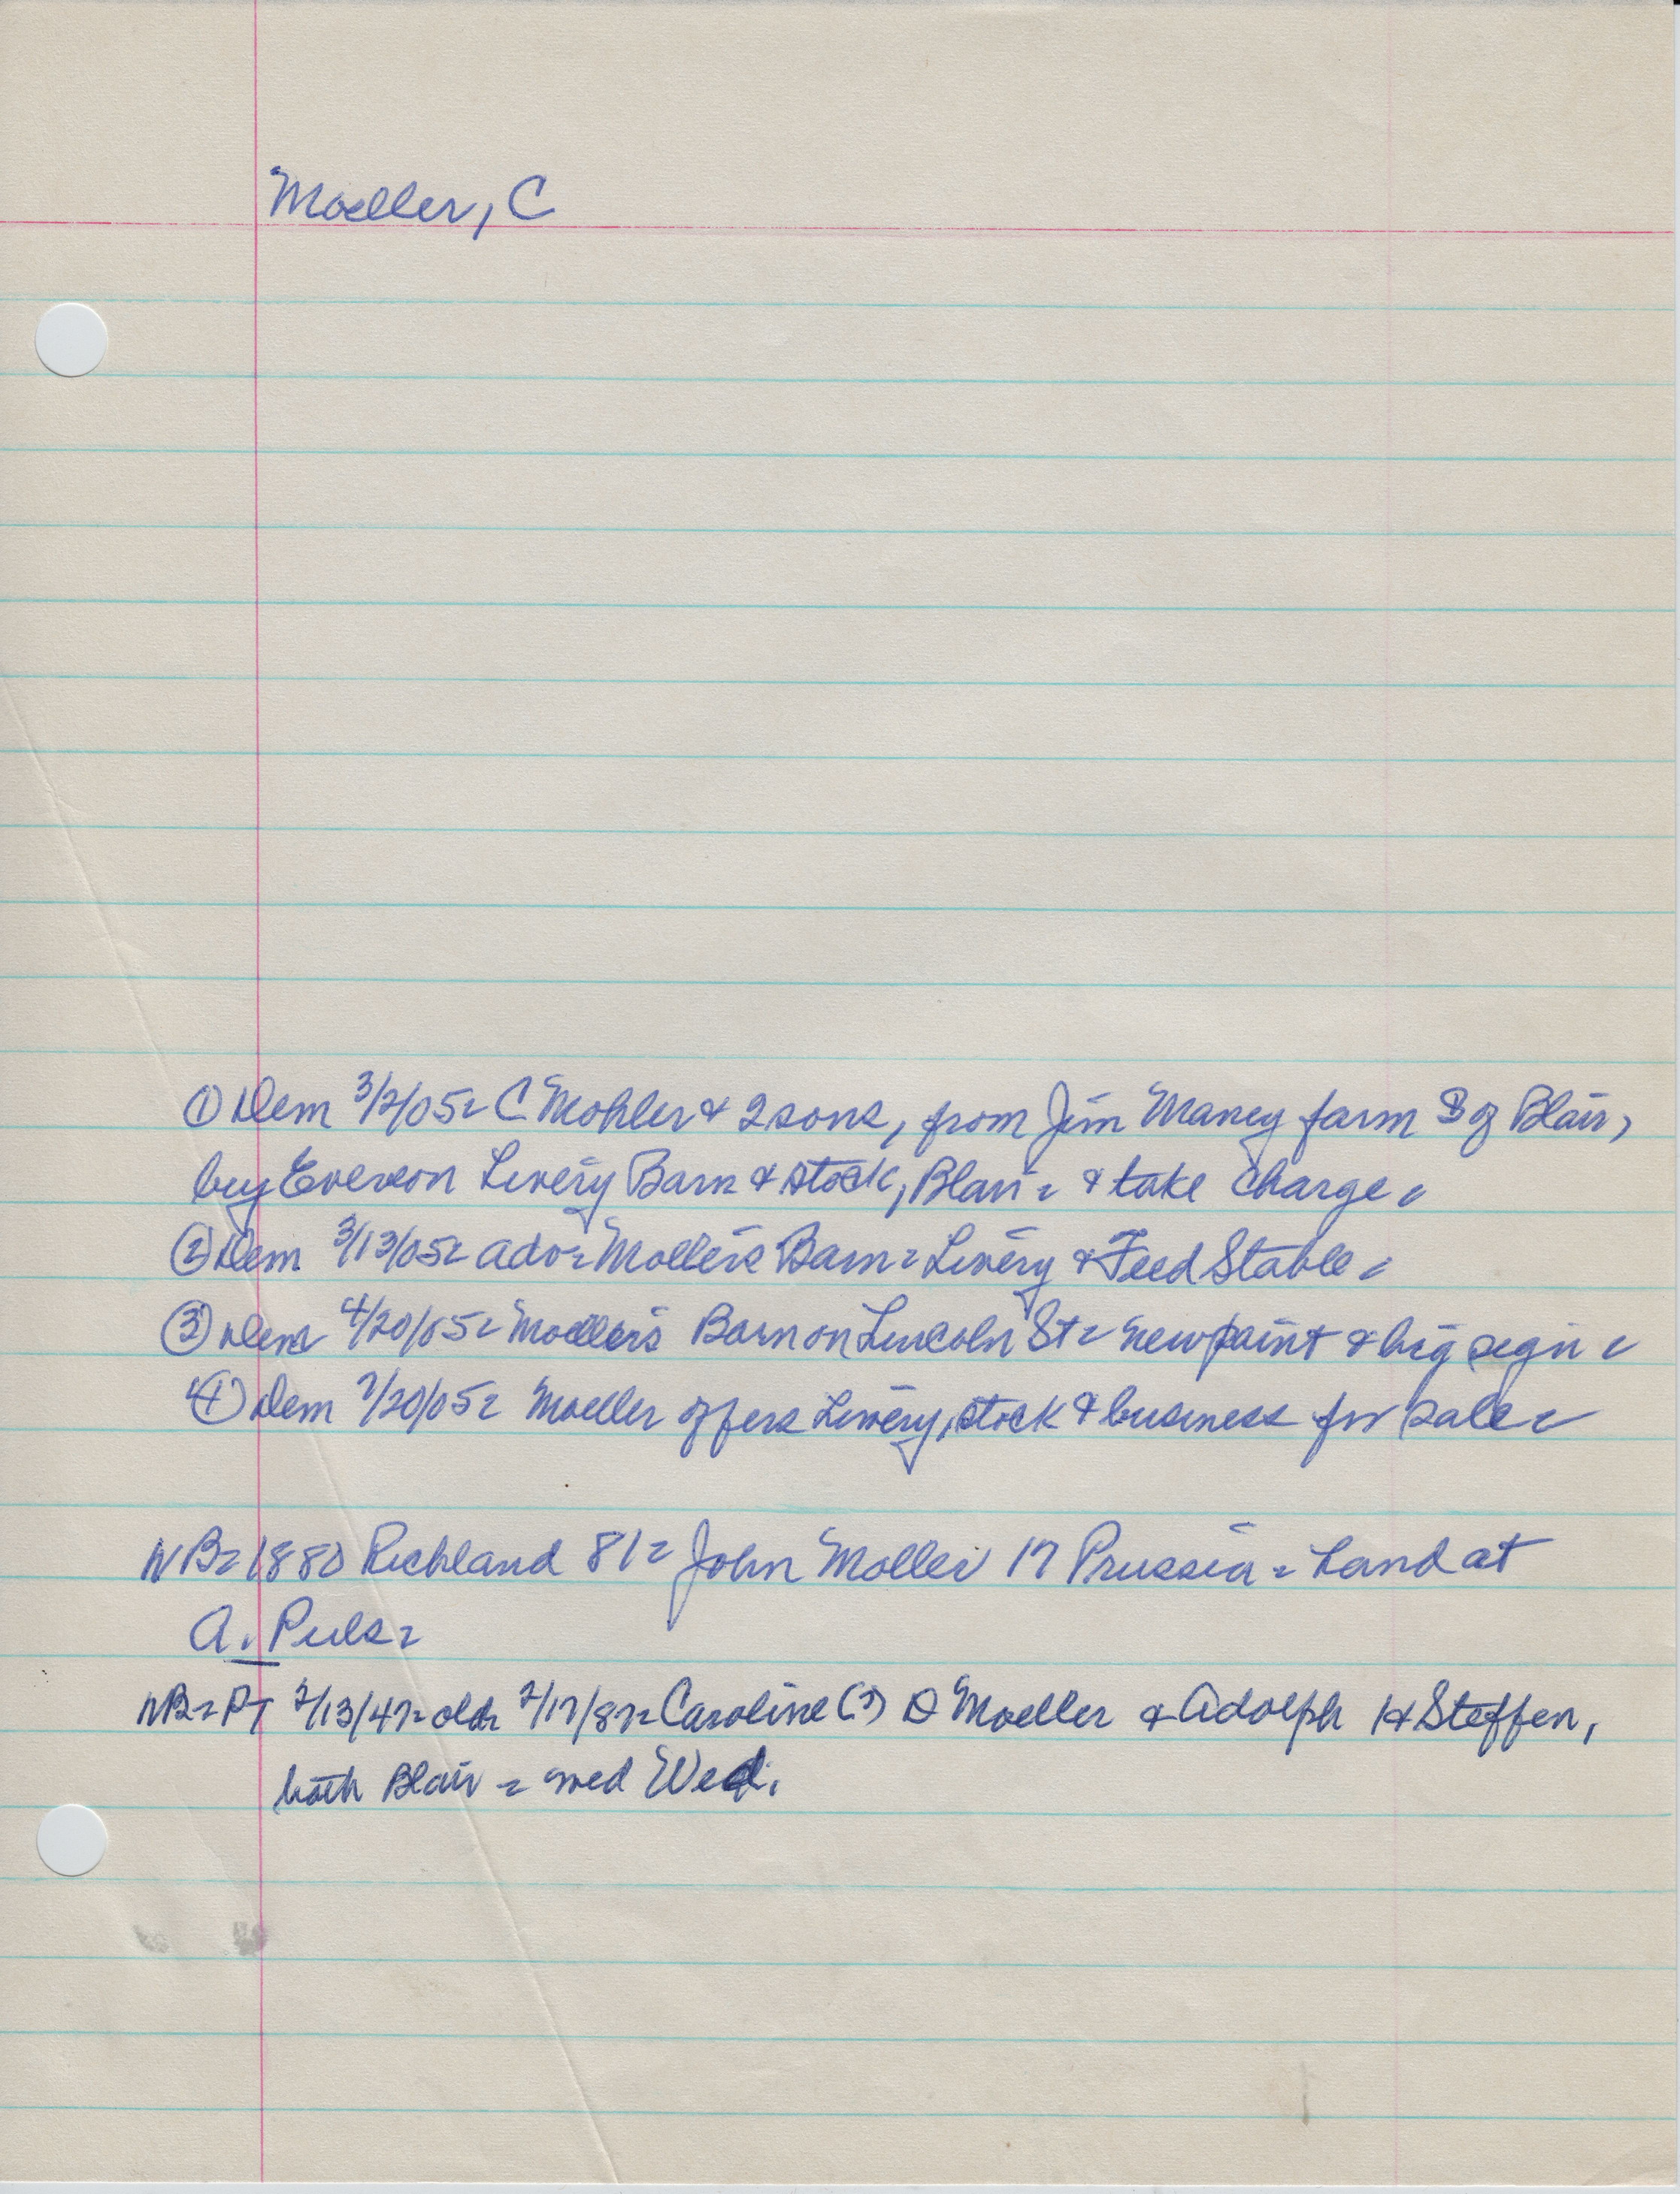 Moeller, C
① Dem 3/2/05 = C Mohler & 2 sons, from Jim Maney farm S of Blair,
buy Everson Livery Barn & stock, Blair = & take charge =
② Dem 3/13/05 = adv = Moller's Barn = Livery & Feed Stable =
③ Dem 4/20/05 = Moeller's Barn on Lincoln St = new paint & big sign =
④ Dem 7/20/05 = Moeller offers Livery, stock & business for sale =
NB = 1880 Richland 81 = John Moller 17 Prussia = Land at
A. Puls =
NB = PT 2/13/47 = old = 2/17/87 = Caroline (?) D Moeller & Adolph H Steffen,
both Blair = med Wed.